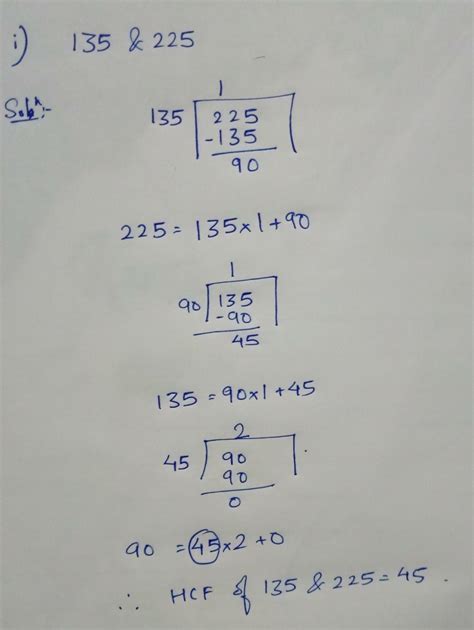 i) 135 & 225
Solⁿ:-
1
135 225
-135
90
225 = 135×1+90
1
90 135
-90
45
135 = 90×1+45
2
45 90
90
0
90 = 45×2+0
∴ HCF of 135 & 225 = 45.